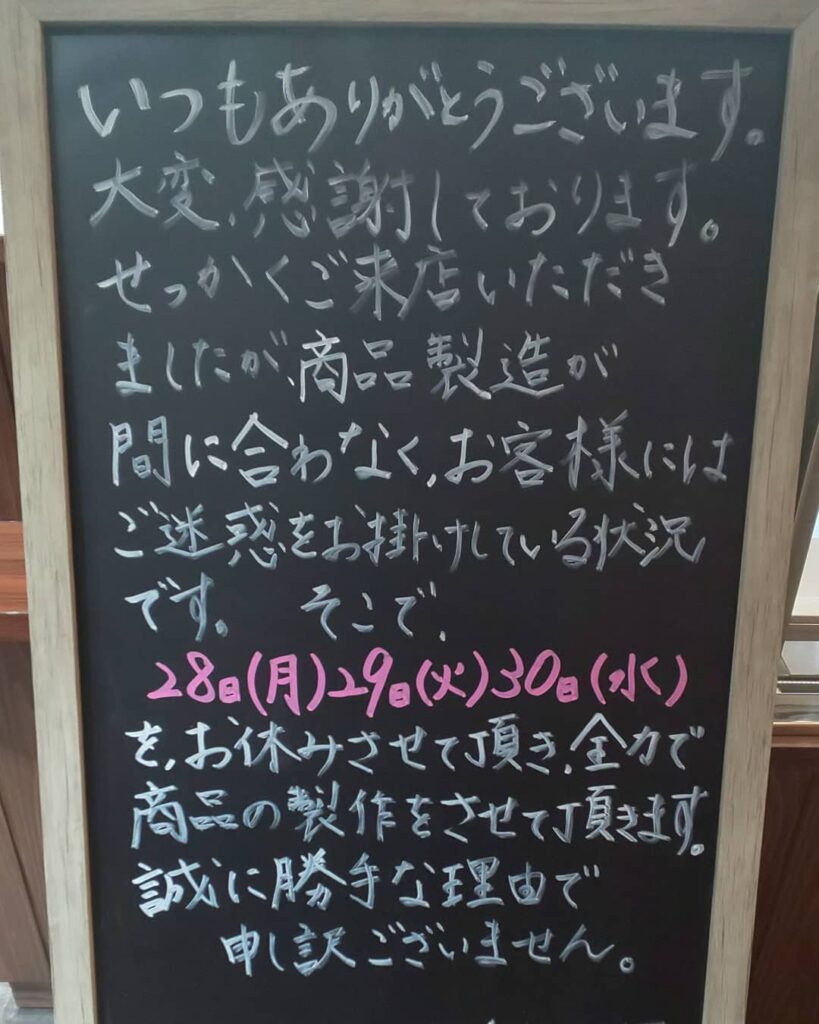 いつもありがとうございます。
大変、感謝しております。
せっかくご来店いただき
ましたが、商品製造が
間に合わなく、お客様には
ご迷惑をお掛けしている状況
です。 そこで、
28日(月)29日(火)30日(水)
を、お休みさせて頂き、全力で
商品の製作をさせて頂きます。
誠に勝手な理由で
申し訳ございません。